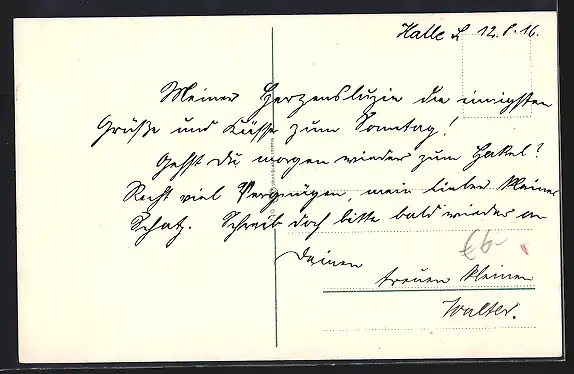 Halle d. 12.8.16.
Meiner Herzensluzie die innigsten
Grüße und Küsse zum Sonntag!
Gehst Du morgen wieder zum Hakel?
Recht viel Vergnügen, mein lieber kleiner
Schatz. Schreib doch bitte bald wieder an
Deinen
treuen kleinen
Walter.
€6-